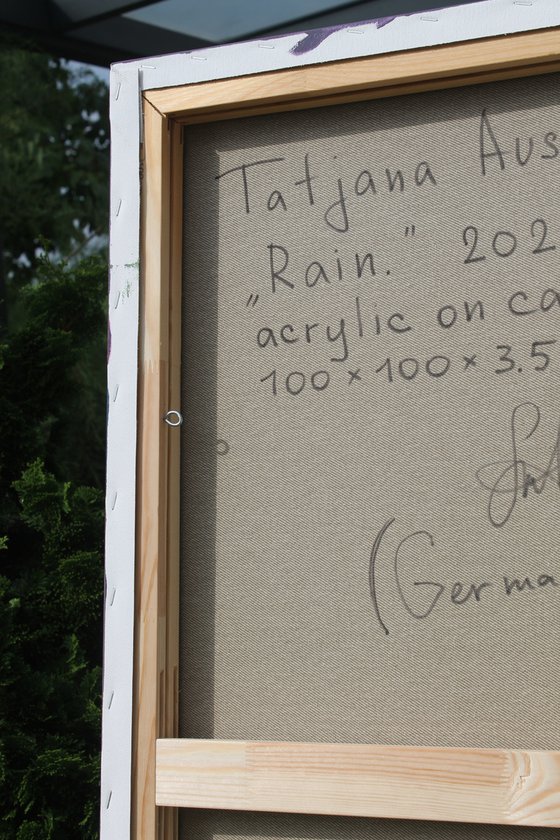 Tatjana Aus
„Rain.” 202
acrylic on ca
100 × 100 × 3.5
(Germa